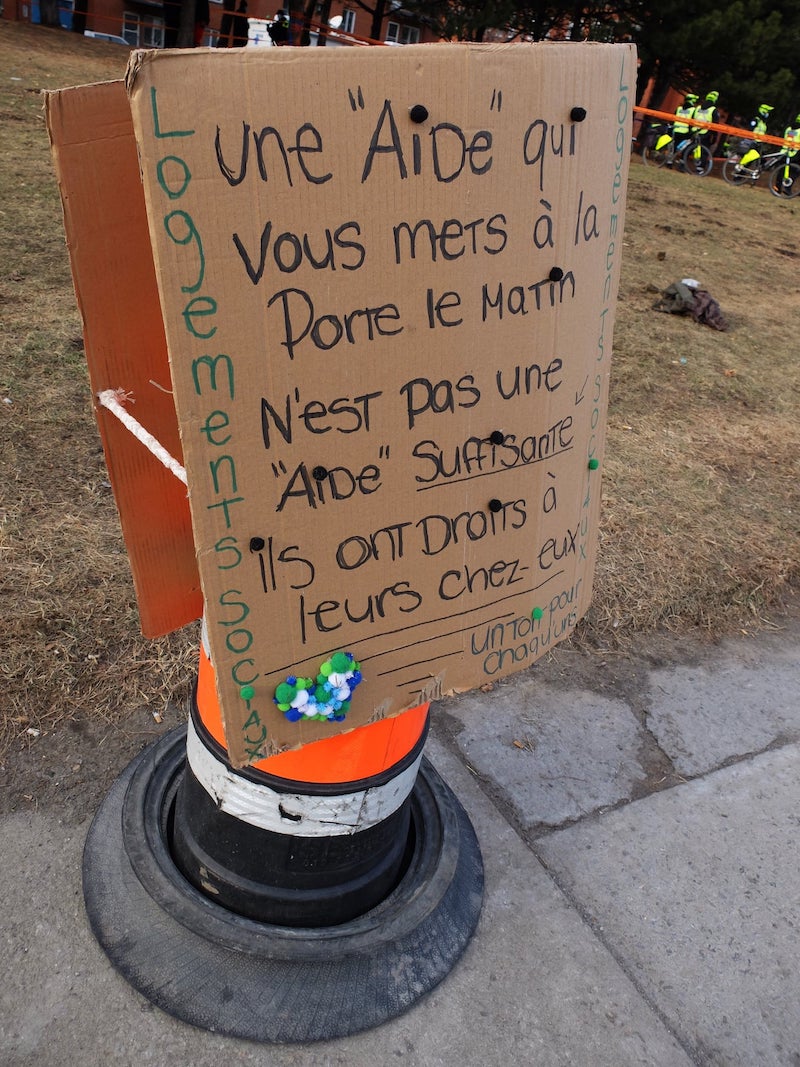 Logements sociaux
une "Aide" qui
vous mets à la
Porte le matin
N'est pas une
"Aide" suffisante
ils ont Droits à
leurs chez-eux
un toit pour
chaqu'uns
Logements sociaux